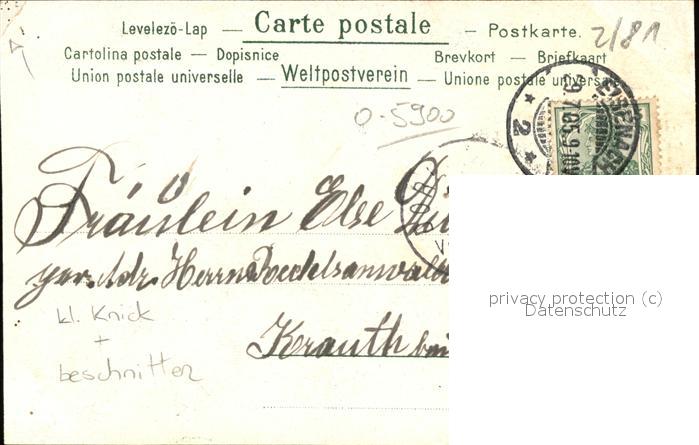 Levelezō-Lap — Carte postale — Postkarte.
2/81
Cartolina postale — Dopisnice Brevkort — Briefkaart
Union postale universelle — Weltpostverein — Unione postale universale
EISENACH
* 2 *
0-5900
Fräulein Else
per. Adr. Herrn Rechtsanwalt
Krauth bei
kl. Knick
+
beschnitten
privacy protection (c)
Datenschutz